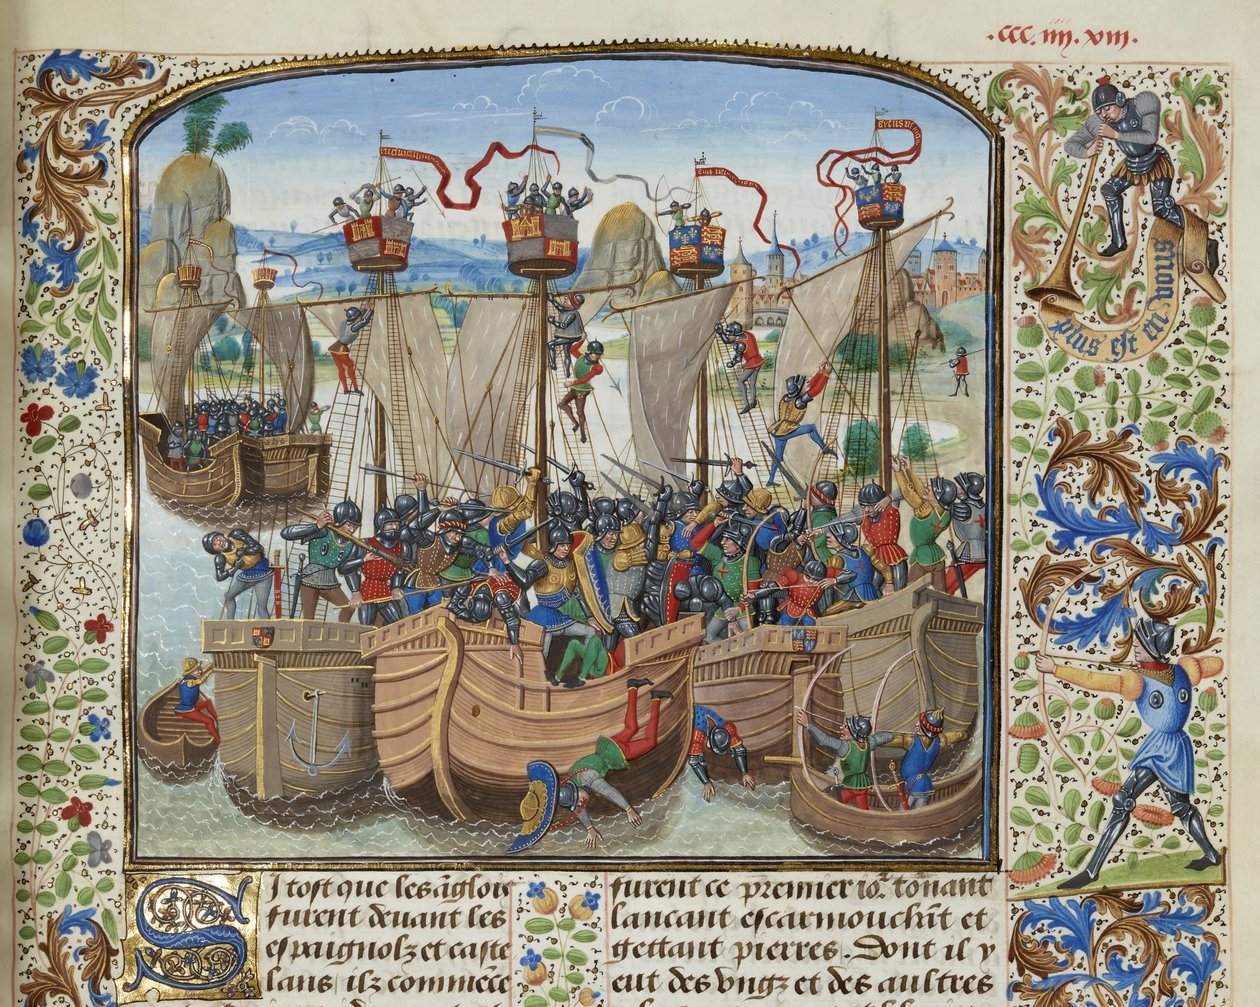 .CCC. iiij. xviij.
plus est en vous
Si tost que les anglois
furent deuant les
espaignolz et caste
lans ilz commēce
furent ce premier io.r tonant
lancant escarmouchāt et
gettant pierres. Dont il y
eut des vngz et des aultres